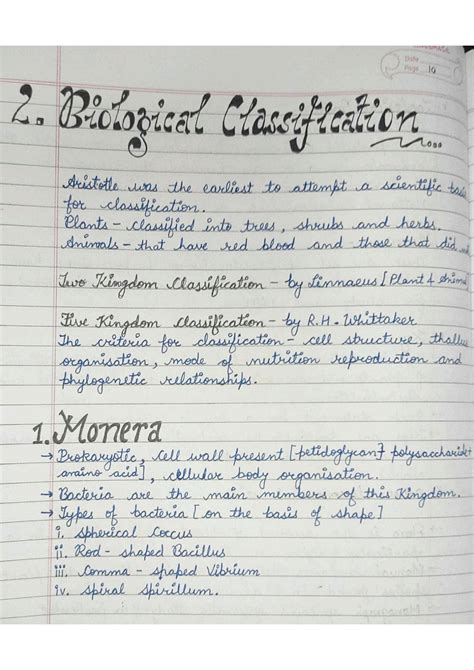 Date
Page 10
2. Biological Classification
Aristotle was the earliest to attempt a scientific
for classification.
Plants - classified into trees, shrubs and herbs.
Animals - that have red blood and those that did
Two Kingdom Classification - by Linnaeus [Plant &
Five Kingdom Classification - by R.H. Whittaker
The criteria for classification - cell structure, thallus
organisation, mode of nutrition reproduction and
phylogenetic relationships.
1. Monera
→ Prokaryotic, cell wall present [petidoglycan} polysaccharide+
amino acid], cellular body organisation.
→ Bacteria are the main members of this Kingdom.
→ Types of bacteria [on the basis of shape]
i. spherical Coccus
ii. Rod - shaped Bacillus
iii. Comma - shaped Vibrium
iv. spiral spirillum.